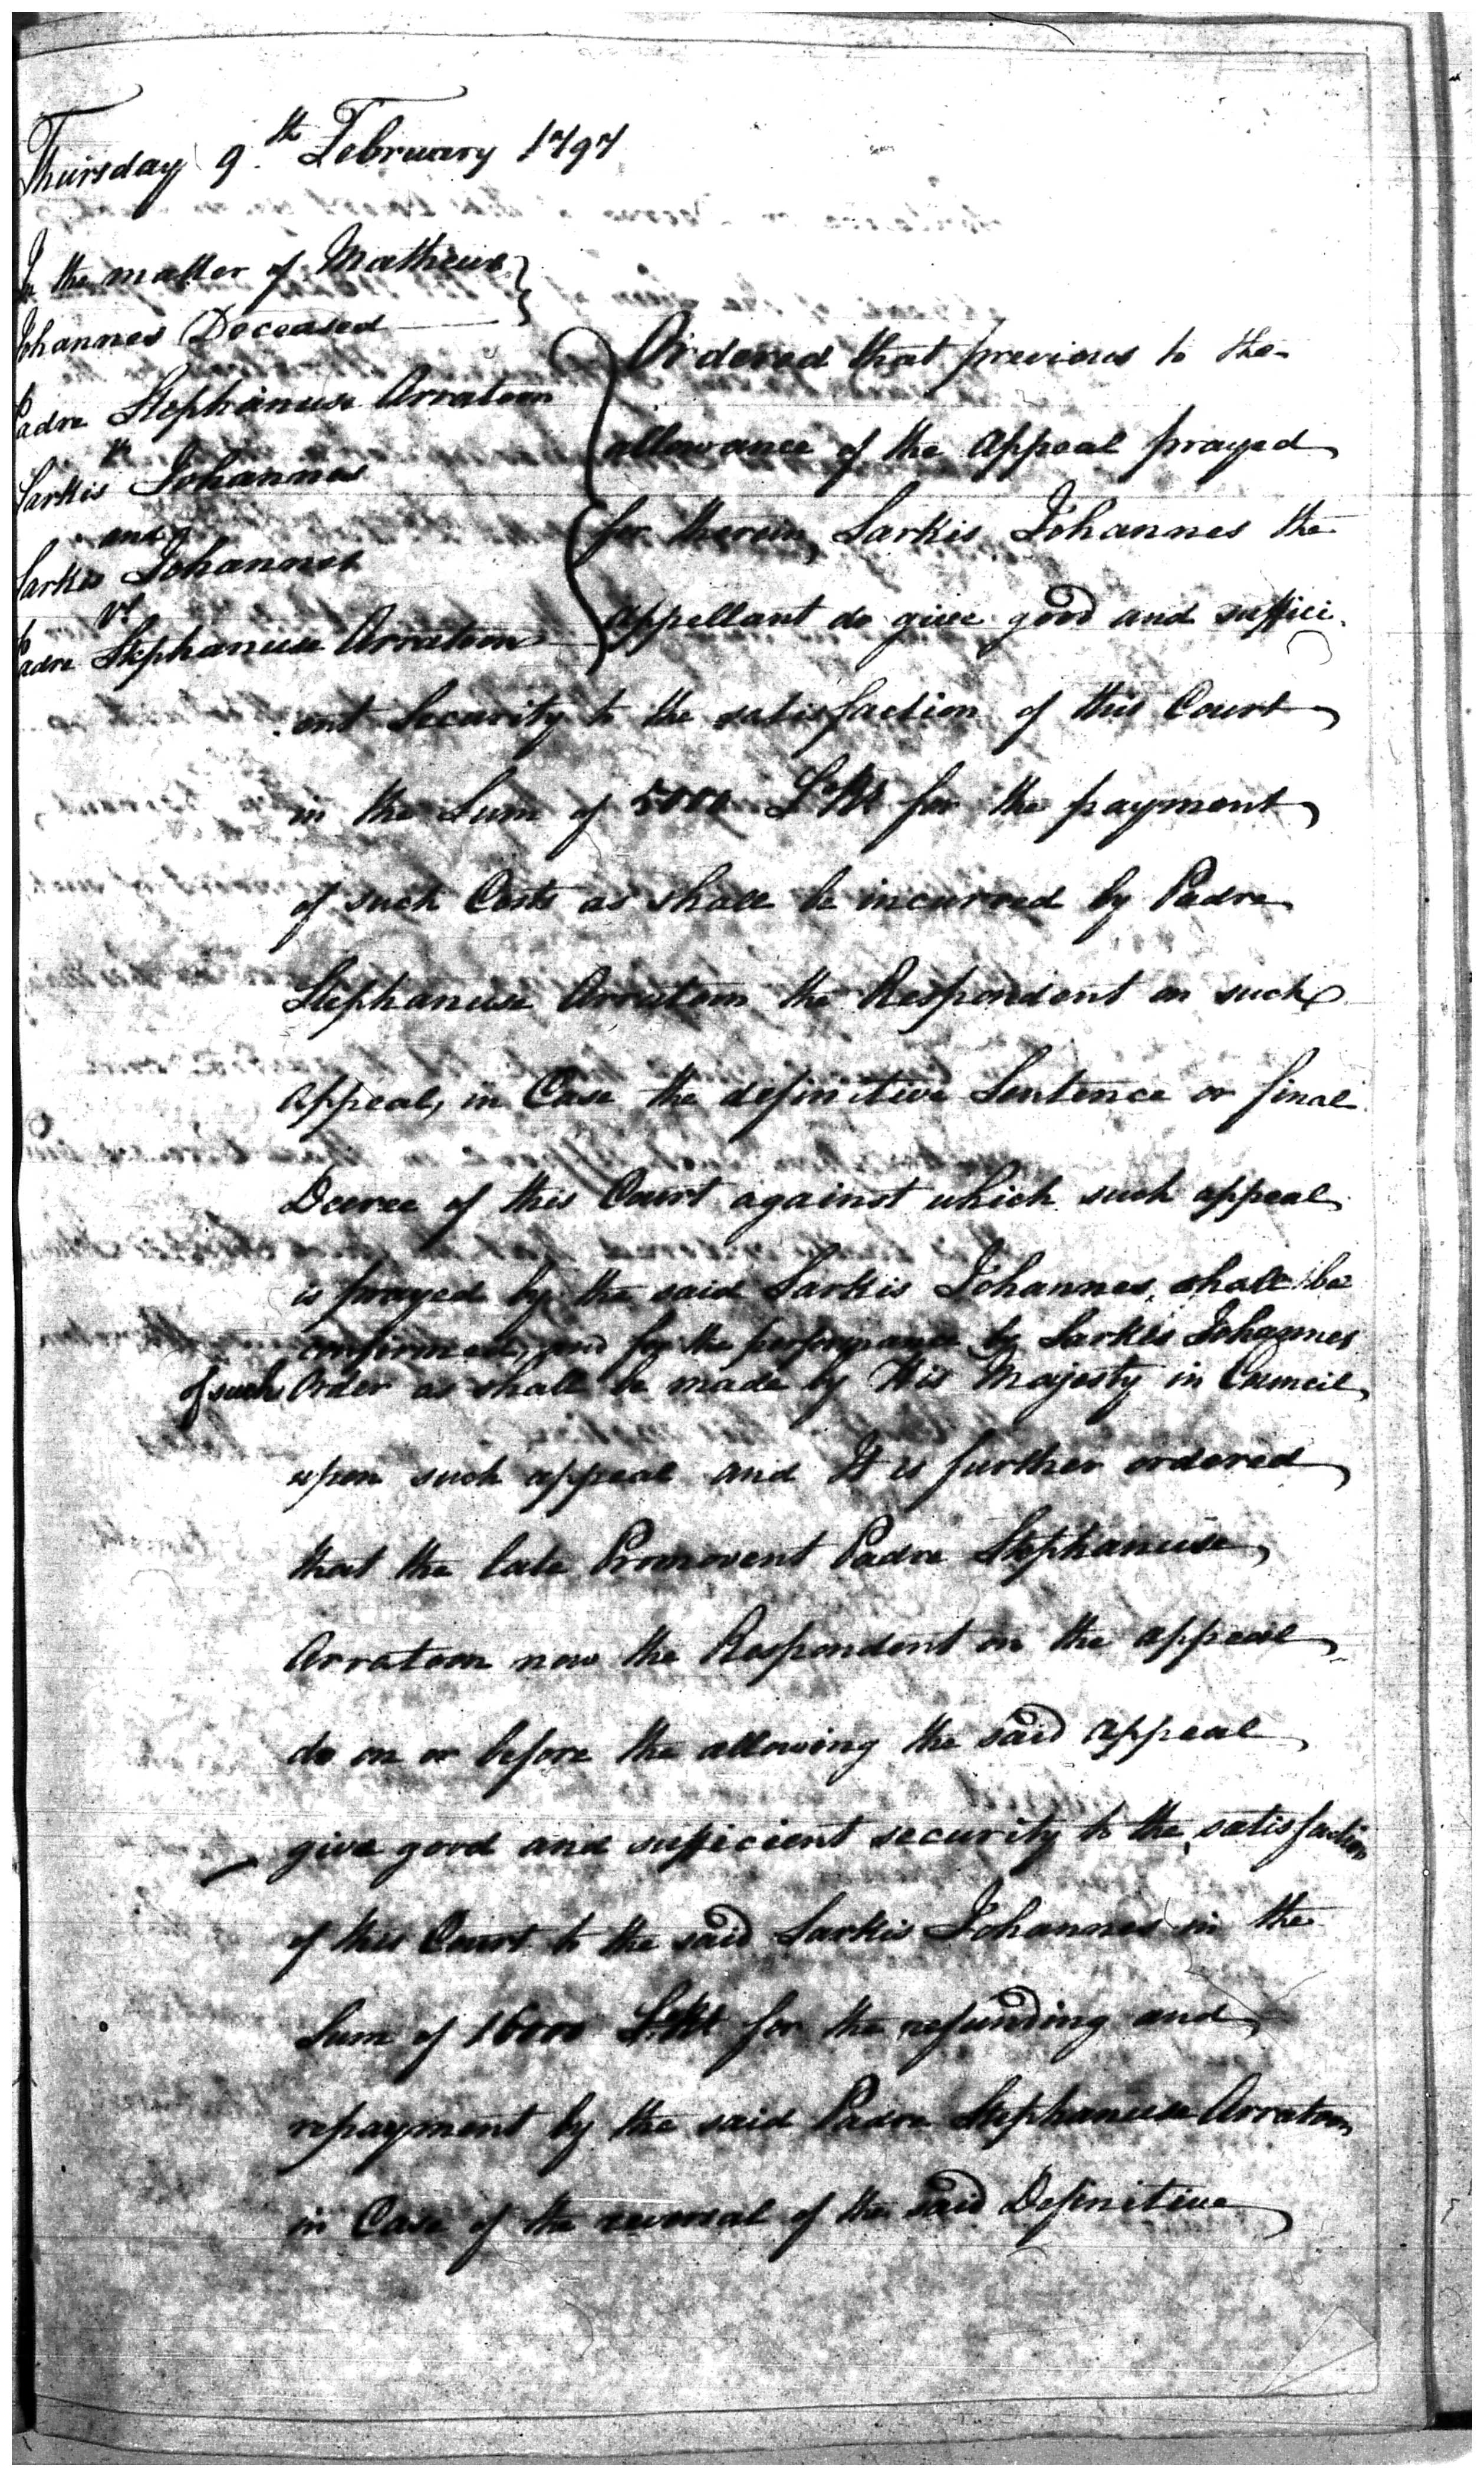 Thursday 9th February 1797
In the matter of Mathews
Johannes Deceased
Padre Stephanuse Arratoon
vs
Sarkis Johannes
and
Sarkis Johannes
vs
Padre Stephanuse Arratoon
Ordered that previous to the
allowance of the Appeal prayed
for therein, Sarkis Johannes the
Appellant do give good and suffici
ent Security to the satisfaction of this Court
in the Sum of 5000 SRs for the payment
of such Costs as shall be incurred by Padre
Stephanuse Arratoon the Respondent on such
Appeal, in Case the definitive Sentence or final
Decree of this Court against which such appeal
is prayed by the said Sarkis Johannes, shall be
confirmed, and for the performance by Sarkis Johannes
of such Order as shall be made by His Majesty in Council
upon such appeal and It is further ordered
that the late Promovent Padre Stephanuse
Arratoon now the Respondent on the appeal
do on or before the allowing the said Appeal
give good and sufficient security to the satisfaction
of this Court to the said Sarkis Johannes in the
Sum of 16000 SRs for the refunding and
repayment by the said Padre Stephanuse Arratoon
in Case of the reversal of the said Definitive